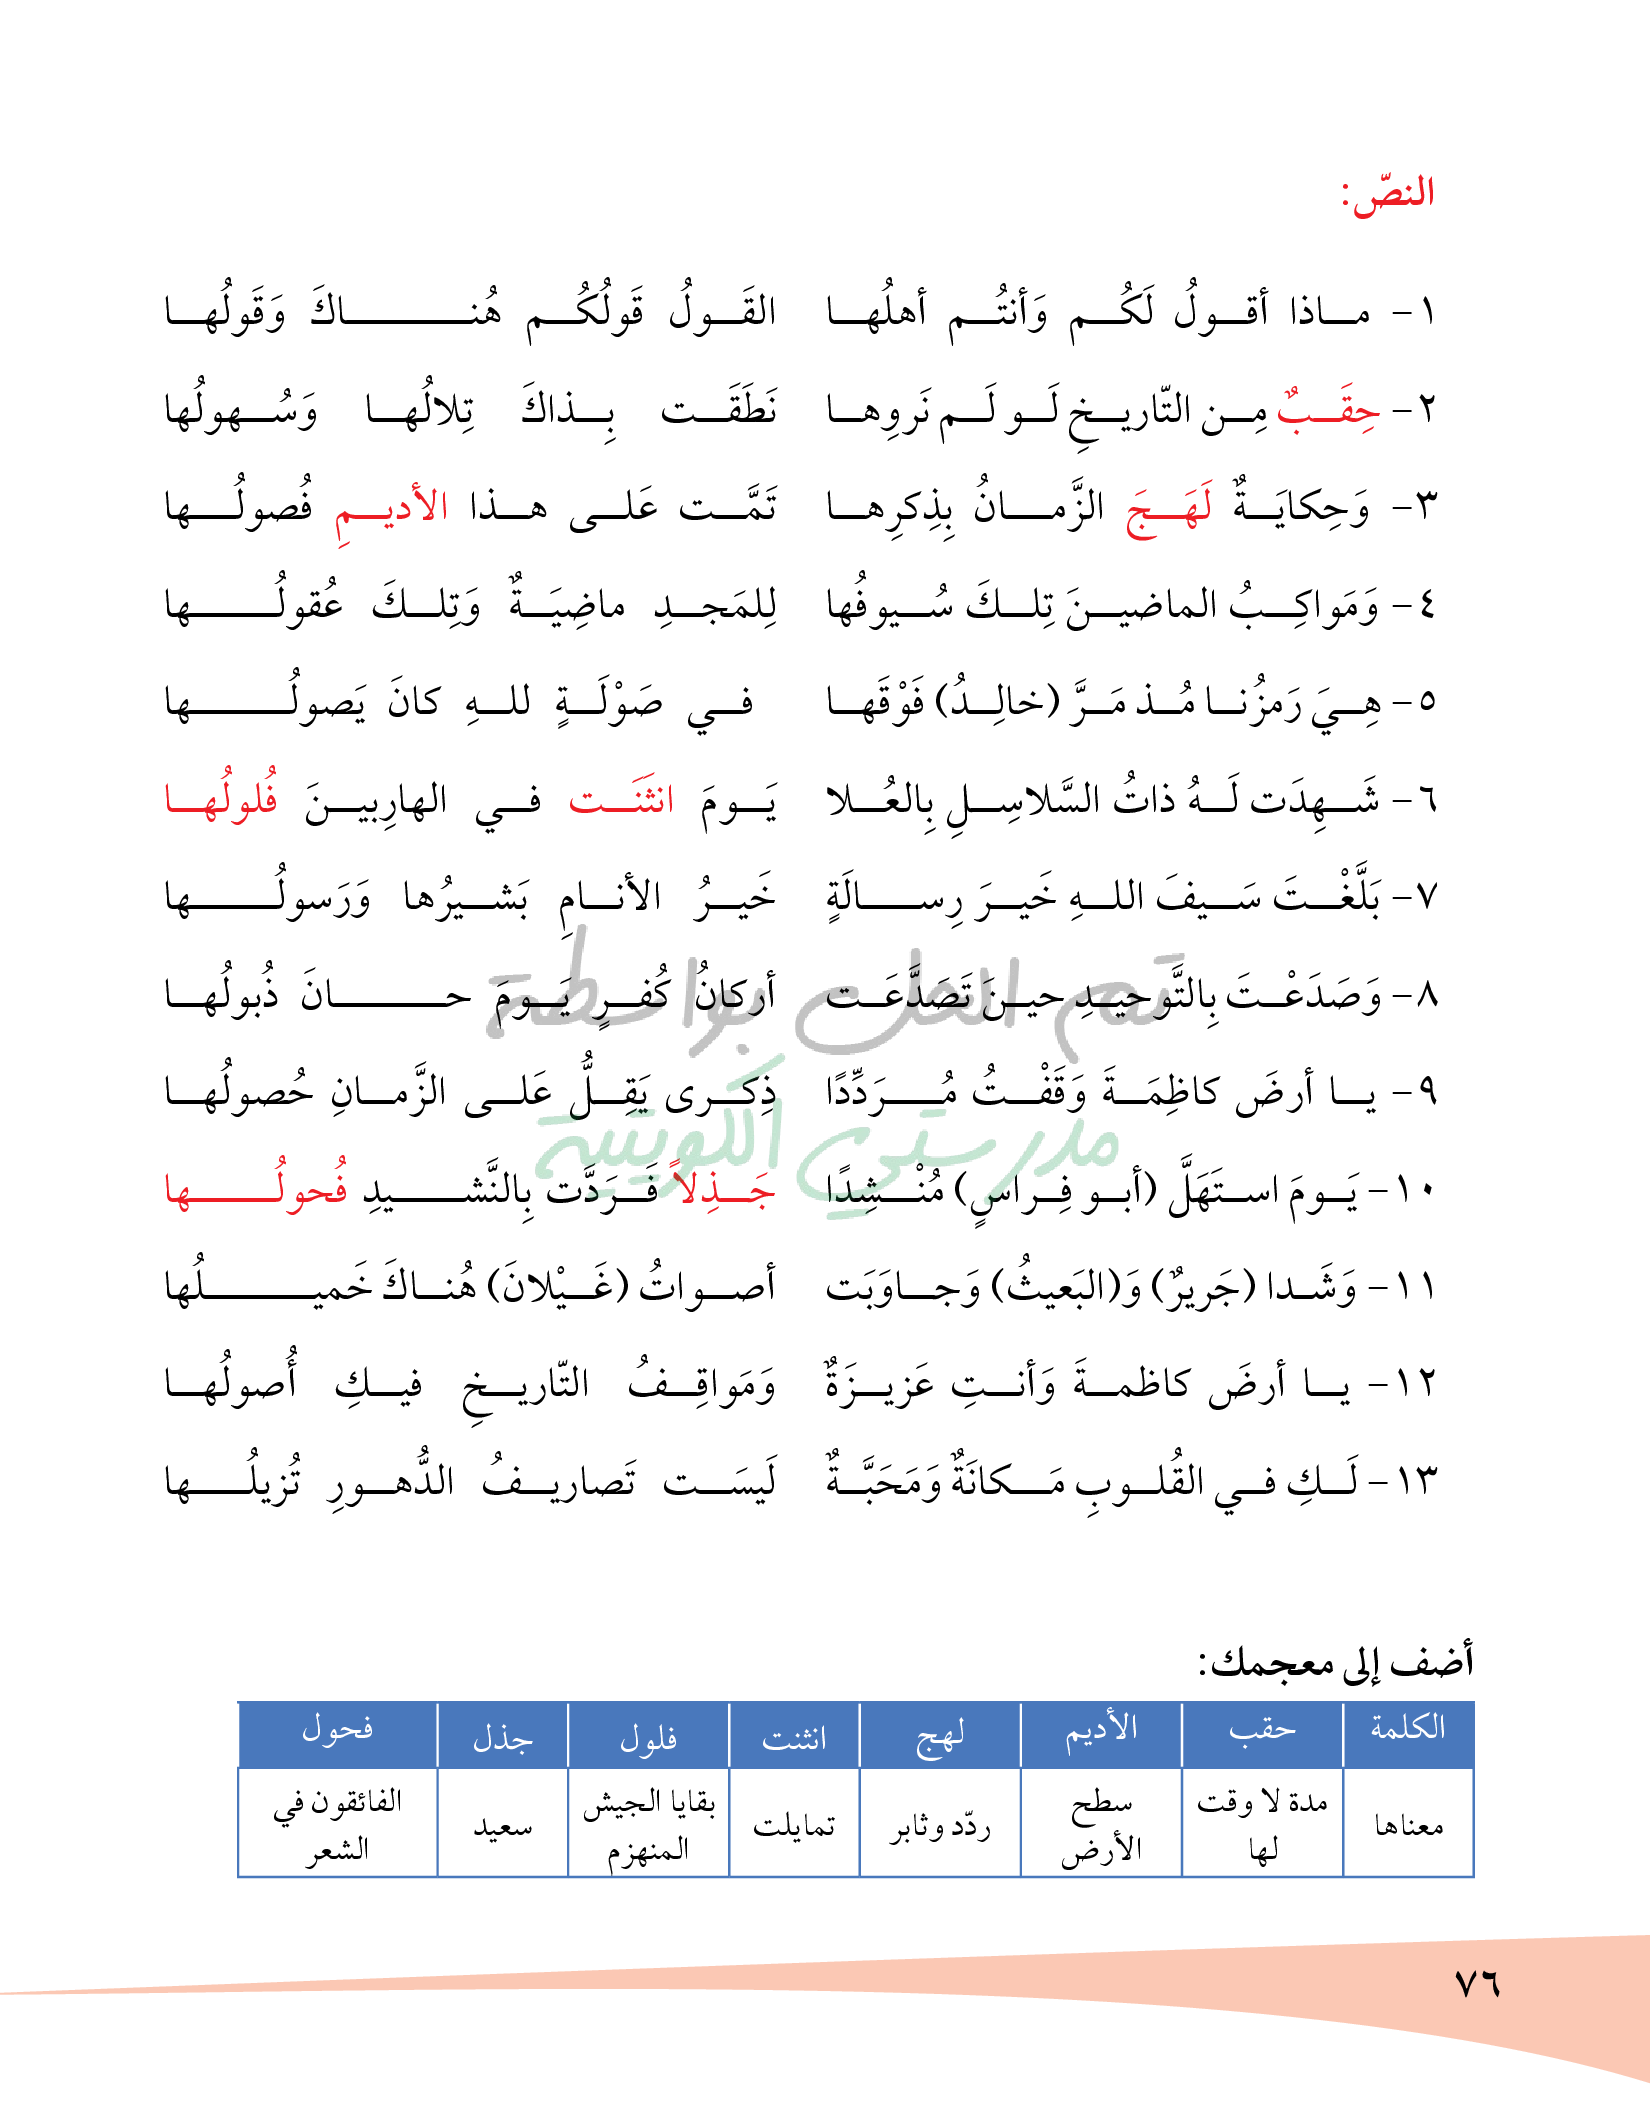 النصّ:
١- ماذا أقولُ لَكُم وَأنتُم أهلُها القَولُ قَولُكُم هُناكَ وَقَولُها
٢- حِقَبٌ مِن التّاريخِ لَو لَم نَروِها نَطَقَت بِذاكَ تِلالُها وَسُهولُها
٣- وَحِكايَةٌ لَهَجَ الزَّمانُ بِذِكرِها تَمَّت عَلى هذا الأديمِ فُصولُها
٤- وَمَواكِبُ الماضينَ تِلكَ سُيوفُها لِلمَجدِ ماضِيَةٌ وَتِلكَ عُقولُها
٥- هِيَ رَمزُنا مُذ مَرَّ (خالِدُ) فَوْقَها في صَوْلَةٍ للهِ كانَ يَصولُها
٦- شَهِدَت لَهُ ذاتُ السَّلاسِلِ بِالعُلا يَومَ انثَنَت في الهارِبينَ فُلولُها
٧- بَلَّغْتَ سَيفَ اللهِ خَيرَ رِسالَةٍ خَيرُ الأنامِ بَشيرُها وَرَسولُها
٨- وَصَدَعْتَ بِالتَّوحيدِ حينَ تَصَدَّعَت أركانُ كُفرٍ يَومَ حانَ ذُبولُها
تم الحل بواسطة
٩- يا أرضَ كاظِمَةَ وَقَفْتُ مُرَدِّدًا ذِكرى يَقِلُّ عَلى الزَّمانِ حُصولُها
مدرستي الكويتية
١٠- يَومَ استَهَلَّ (أبو فِراسٍ) مُنْشِدًا جَذِلاً فَرَدَّت بِالنَّشيدِ فُحولُها
١١- وَشَدا (جَريرٌ) وَ(البَعيثُ) وَجاوَبَت أصواتُ (غَيْلانَ) هُناكَ خَميلُها
١٢- يا أرضَ كاظمةَ وَأنتِ عَزيزَةٌ وَمَواقِفُ التّاريخِ فيكِ أُصولُها
١٣- لَكِ في القُلوبِ مَكانَةٌ وَمَحَبَّةٌ لَيسَت تَصاريفُ الدُّهورِ تُزيلُها
أضف إلى معجمك:
الكلمة حقب الأديم لهج انثنت فلول جذل فحول
معناها مدة لا وقت لها سطح الأرض ردّد وثابر تمايلت بقايا الجيش المنهزم سعيد الفائقون في الشعر
٧٦